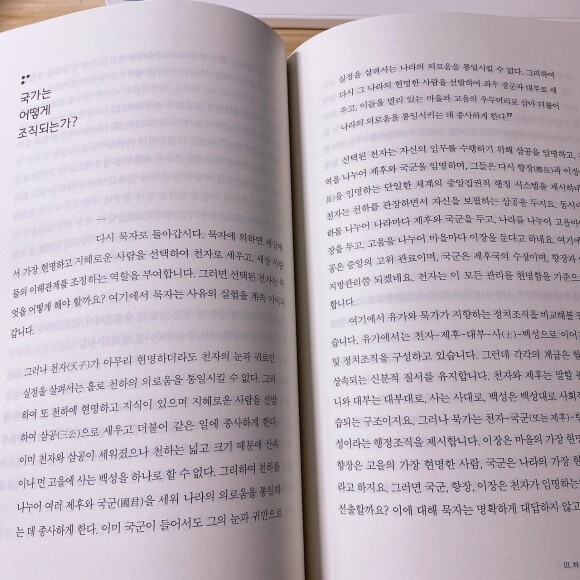 국가는
어떻게
조직되는가?
다시 묵자로 돌아갑시다. 묵자에 의하면 세상에
서 가장 현명하고 지혜로운 사람을 선택하여 천자로 세우고, 세상 사람
들의 이해관계를 조정하는 역할을 부여합니다. 그러면 선택된 천자는 무
엇을 어떻게 해야 할까요? 여기에서 묵자는 사유의 실험을 계속 이어나
갑니다.
그러나 천자(天子)가 아무리 현명하더라도 천자의 눈과 귀로만
실정을 살펴서는 홀로 천하의 의로움을 통일시킬 수 없다. 그리
하여 또 천하에 현명하고 지식이 있으며 지혜로운 사람을 선발
하여 삼공(三公)으로 세우고 더불어 같은 일에 종사하게 한다.
이미 천자와 삼공이 세워졌으나 천하는 넓고 크기 때문에 산속
이나 먼 고을에 사는 백성을 하나로 할 수 없다. 그리하여 천하를
나누어 여러 제후와 국군(國君)을 세워 나라의 의로움을 통일하
는 데 종사하게 한다. 이미 국군이 들어서도 그의 눈과 귀만으로
실정을 살펴서는 나라의 의로움을 통일시킬 수 없다. 그리하여
다시 그 나라의 현명한 사람을 선발하여 좌우 장군과 대부로 세
우고, 이들을 멀리 있는 마을과 고을의 우두머리로 삼아 더불어
나라의 의로움을 통일시키는 데 종사하게 한다.”
선택된 천자는 자신의 임무를 수행하기 위해 삼공을 임명하고,
역을 나누어 제후와 국군을 임명하며, 그들은 다시 향장(鄕長)과 이장
長)을 임명하는 단일한 체계의 중앙집권적 행정 시스템을 제시하
천자는 천하를 관장하면서 자신을 보필하는 삼공을 두지요. 동시에
하를 나누어 나라마다 제후와 국군을 두고, 나라를 나누어 고을마
장을 두고, 고을을 나누어 마을마다 이장을 둔다고 하네요. 여기에
공은 중앙의 고위 관료이며, 국군은 제후국의 수장이며, 향장과
지방관리쯤 되겠네요. 천자는 이 모든 관리를 현명함을 기준으
합니다.
여기에서 유가와 묵가가 지향하는 정치조직을 비교해볼 필
습니다. 유가에서는 천자-제후-대부-사(士)-백성으로 이어
및 정치조직을 구성하고 있습니다. 그런데 각각의 계급은
상속되는 신분적 질서를 유지합니다. 천자와 제후는 말할
니와 대부는 대부대로, 사는 사대로, 백성은 백성대로 사회
습되는 구조이지요. 그러나 묵가는 천자-국군(또는 제후)-향
성이라는 행정조직을 제시합니다. 이장은 마을의 가장 현명
향장은 고을의 가장 현명한 사람, 국군은 나라의 가장 현
라고 하지요. 그러면 국군, 향장, 이장은 천자가 임명하는
선출할까요? 이에 대해 묵자는 명확하게 대답하지 않고